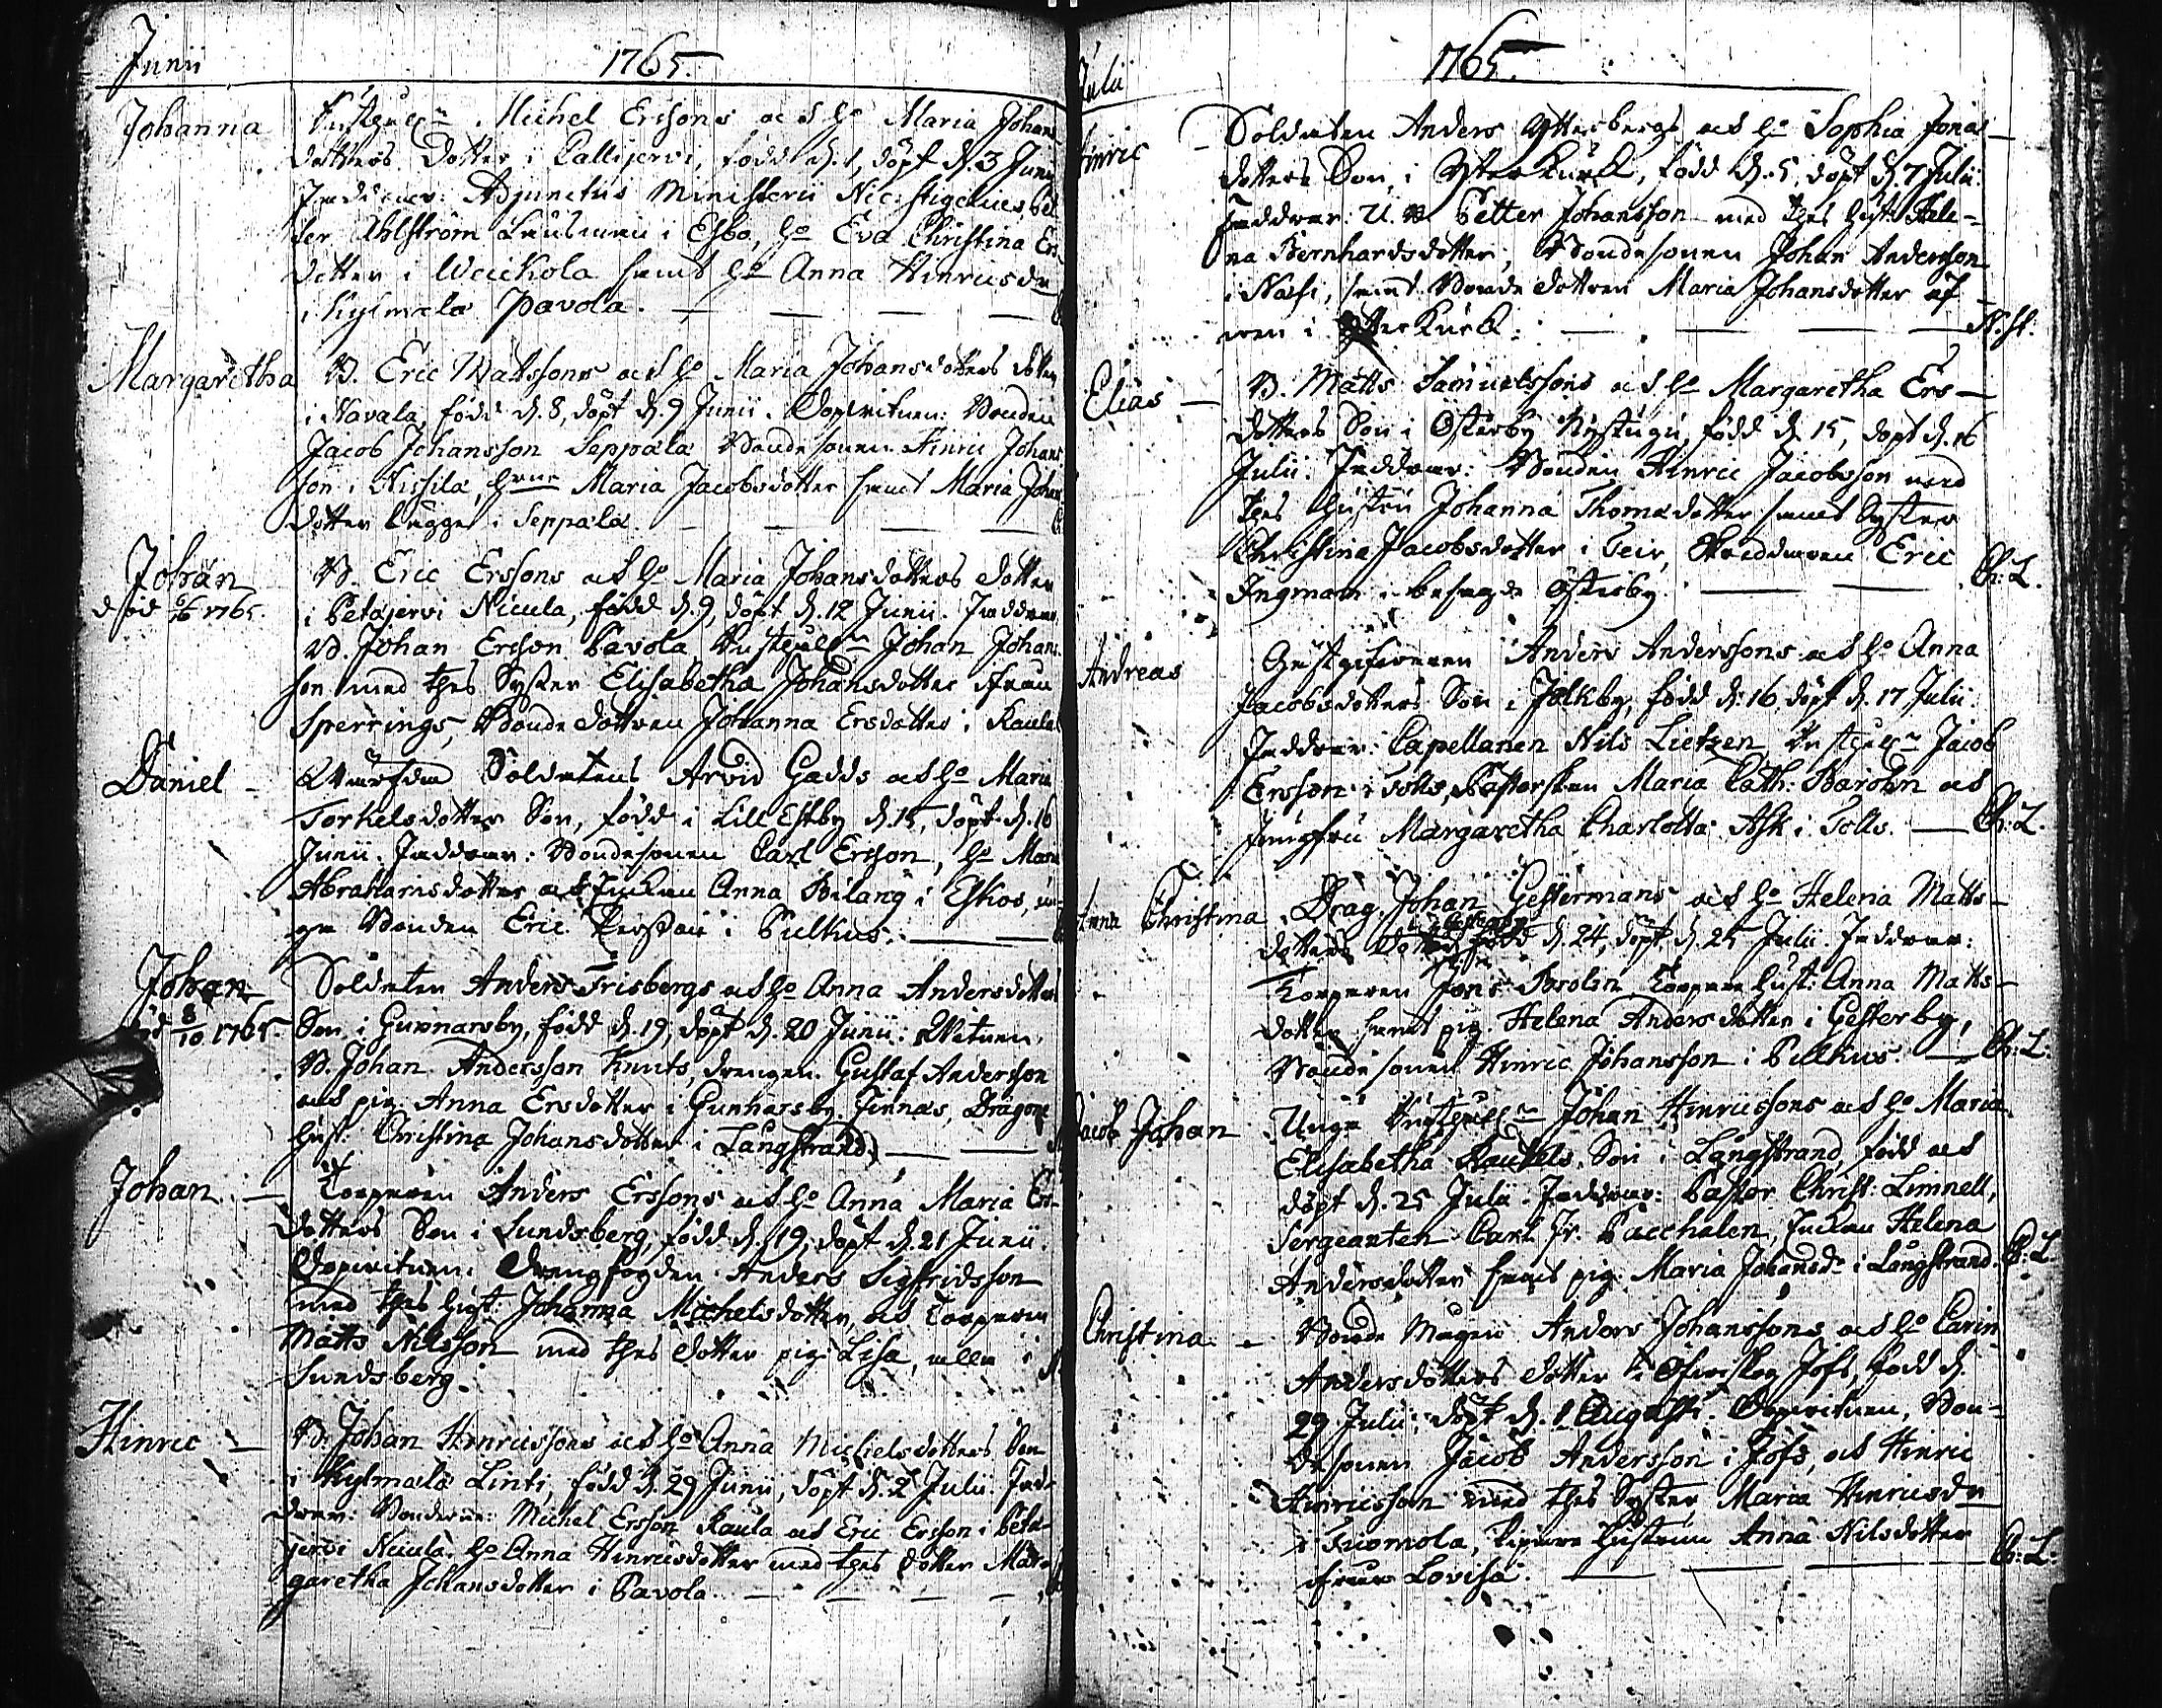 Junii 1765.
Johanna Rusthåll:n Michel Erssons och h:o Maria Johans
dotters Dotter i Callijervi, född d. 1, döpt d. 3 Junii
Faddrar: Adjunctus Ministerii Nic: Stigelius, Pet
ter Ahlström Länsman i Esbo, h:o Eva Christina Ers
dotter i Weickola samt h:o Anna Hinricsdr
i Kylmälä Pavola.
Margaretha B. Eric Mattssons och h:o Maria Johansdotters dotter
i Navala, född d. 8, döpt d. 9 Junii. Dopvitnen: Bonden
Jacob Johansson Seppälä Bondesonen Hinric Johans
son i Nissilä, Maria Jacobsdotter samt Maria Johans
dotter bägge i Seppälä.
Johan B. Eric Erssons och h:o Maria Johansdotters dotter
död 1765. i Petäjervi Nicula, född d. 9, döpt d. 12 Junii. Faddrar
B. Johan Ersson Pavola Rusthåll:n Johan Johans
son med thes Syster Elisabetha Johansdotter ifrån
Sperrings, Bondedottren Johanna Ersdotter i Kaula
Daniel - Soldatens Arvid Gadds och h:o Maria
Torkelsdotter Son, född i Lill Estby d. 15, döpt d. 16
Junii. Faddrar: Bondesonen Carl Ersson, h:o Maria
Abrahamsdotter och Enkan Anna Bilang i Eskos,
ge Bonden Eric Persson i Pulkus.
Johan Soldaten Anders Frisbergs och h:o Anna Andersdotters
död 8/10 1765. Son i Gunnarsby, född d. 19, döpt d. 20 Junii: Witnen,
B. Johan Andersson Knuts, drengen Gustaf Andersson
och pig. Anna Ersdotter i Gunnarsby Finnas, Dragone
hust: Christina Johansdotter i Långstrand.
Johan Torparen Anders Erssons och h:o Anna Maria Ers-
dotters Son i Sundsberg, född d. 19, döpt d. 21 Junii.
Dopvitnen: Drengfogden Anders Sigfridsson
med thes hust: Johanna Michelsdotter, och Torparen
Matts Nilsson med thes dotter pig. Lisa, alla i
Sundsberg.
Hinric - B. Johan Hinricssons och h:o Anna Michelsdotters Son
i Kylmälä Linti, född d. 29 Junii, döpt d. 2 Julii. Fad-
drar: Bönderne: Michel Ersson Kaula och Eric Ersson i Petä-
jervi Nicula, h:o Anna Hinricsdotter med thes dotter Mar-
garetha Johansdotter i Pavola.
Julii 1765.
Hinric - Soldaten Anders Ytterbergs och h:o Sophia Jonas-
dotters Son, i Ytter Kurck, född d. 5, döpt d. 7 Julii.
Faddrar: U. B. Petter Johansson med thes hust: Hele-
na Bernhardsdotter, Bondesonen Johan Andersson
i Näsi, samt Bondedottren Maria Johansdotter äf-
ven i Ytter Kurck. N. St.
Elias - B. Matts Samuelssons och h:o Margaretha Ers-
dotters Son i Österby Nystugu, född d. 15, döpt d. 16
Julii. Faddrar: Bonden Hinric Jacobsson med
thes Hustru Johanna Thomasdotter samt Syster
Christina Jacobsdotter i Teir, Skräddaren Eric
Ingman i besagde Österby. Ch: L.
Andreas Gästgifvaren Anders Anderssons och h:o Anna
Jacobsdotters Son i Jolkby, född d. 16, döpt d. 17 Julii.
Faddrar: Capellanen Nils Lietzen, Rusthåll:n Jacob
Ersson i Tolls, Pastorskan Maria Cath: Barohn och
Jungfru Margaretha Charlotta Ask i Tolls. Ch: L.
Anna Christina Drag. Johan Gestermans och h:o Helena Matts-
i Gesterby
dotters Dotter född d. 24, döpt d. 25 Julii. Faddrar:
Torparen Jöns Brolin Torpare hust: Anna Matts-
dotter samt pig. Helena Andersdotter i Gesterby,
Bondesonen Hinric Johansson i Pulkus. Ch: L.
Jacob Johan Unge Rusthåll:n Johan Hinricssons och h:o Maria
Elisabetha Son i Långstrand, född och
döpt d. 25 Julii. Faddrar: Pastor Christ: Limnell,
Sergeanten Carl Fr. Pacchalen, Enkan Helena
Andersdotter samt pig. Maria Johansd:r i Långstrand. Ch: L.
Christina - Bonde Mågen Anders Johanssons och h:o Carin
Andersdotters dotter i Öfveskog Jofs, född d.
29 Julii, döpt d. 1 Augusti. Dopvitnen, Bon-
desonen Jacob Andersson i Jofs, och Hinric
Hinricsson med thes Syster Maria Hinricsdr
i Tuomola, Hustrun Anna Nilsdotter
ifrån Lovisa. Ch: L.